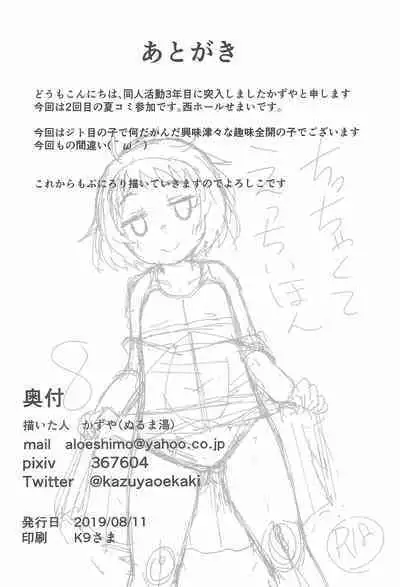 あとがき
どうもこんにちは、同人活動3年目に突入しましたかずやと申します
今回は2回目の夏コミ参加です。西ホールせまいです。
今回はジト目の子で何だかんだ興味津々な趣味全開の子でございます
今回もの間違い(´ω`)
これからもぷにろり描いていきますのでよろしこです
ちっちゃくて
えっちいほん
奥付
描いた人 かずや(ぬるま湯)
mail aloeshimo@yahoo.co.jp
pixiv 367604
Twitter @kazuyaoekaki
発行日 2019/08/11
印刷 K9さま
R18